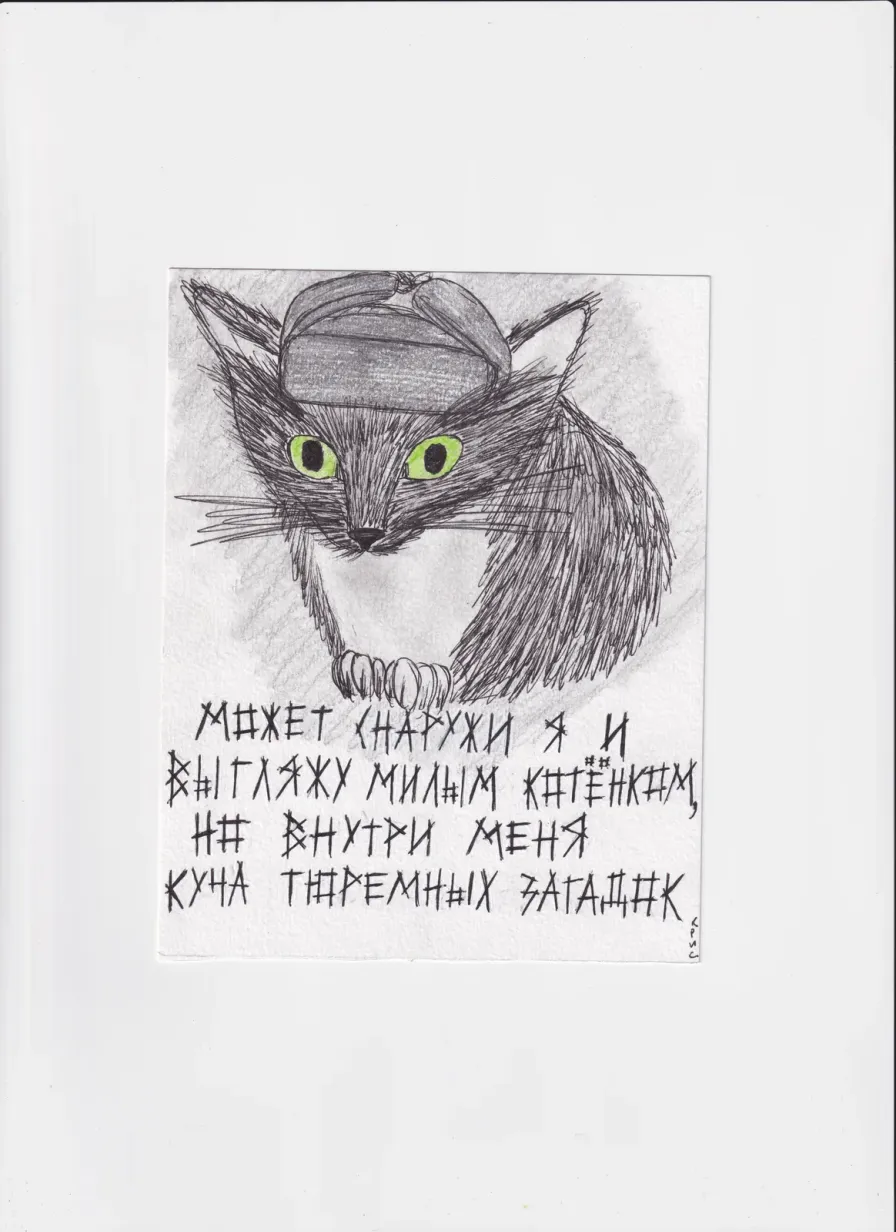 МОЖЕТ СНАРУЖИ Я И
ВЫГЛЯЖУ МИЛЫМ КОТЁНКОМ,
НО ВНУТРИ МЕНЯ
КУЧА ТЮРЕМНЫХ ЗАГАДОК
КРИС